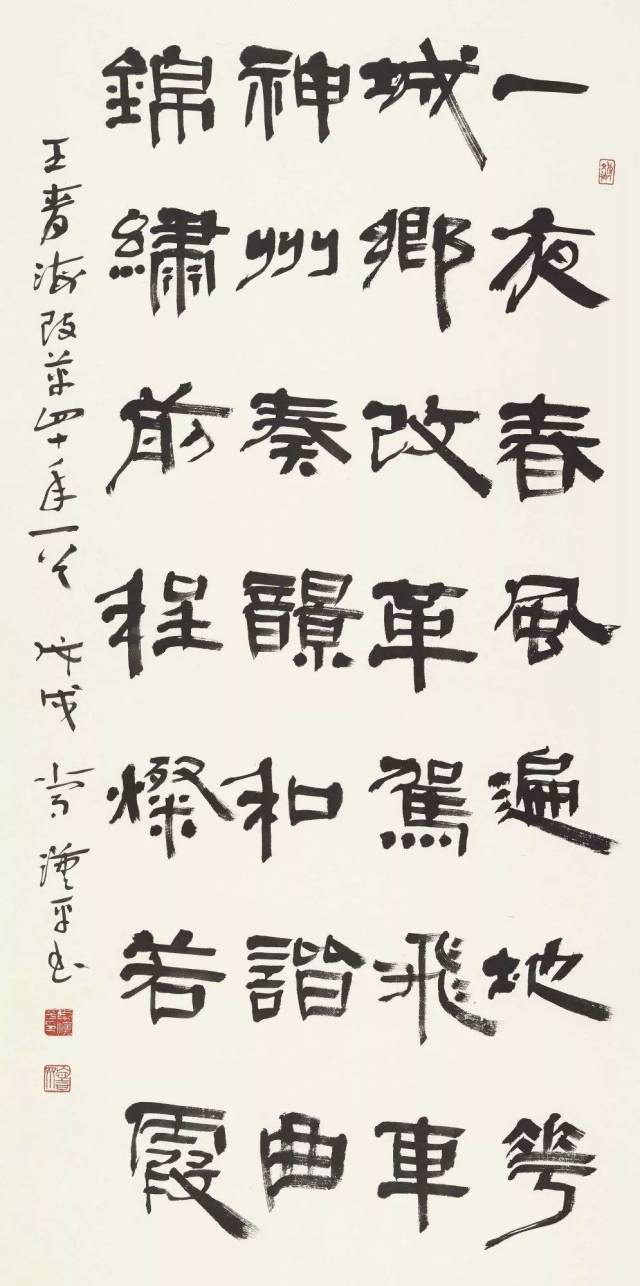 一夜春風遍地華
城鄉改革駕飛車
神州奏韻和諧曲
錦繡前程燦若霞
王青海改革四十年一首 戊戌 常漢平书